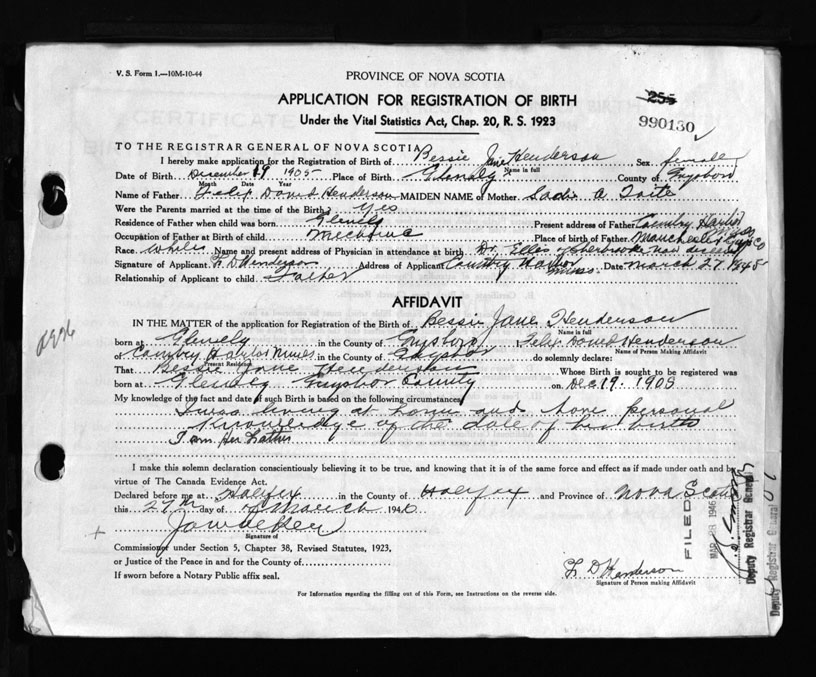 V. S. Form 1.—10M-10-44
PROVINCE OF NOVA SCOTIA
APPLICATION FOR REGISTRATION OF BIRTH
Under the Vital Statistics Act, Chap. 20, R. S. 1923
255
990130
TO THE REGISTRAR GENERAL OF NOVA SCOTIA
I hereby make application for the Registration of Birth of Bessie Jane Henderson Sex female
Name in full
Date of Birth December 19 1905 Place of Birth Glenely County of Guysboro
Month Date Year
Name of Father Felix David Henderson MAIDEN NAME of Mother Sadie A Taite
Were the Parents married at the time of the Birth? Yes
Residence of Father when child was born Glenely Present address of Father Country Harbor Mines
Occupation of Father at Birth of child Place of Birth of Father Manchester Guys Co
Race White Name and present address of Physician in attendance at birth Dr. Ellis Sherbrooke now
Signature of Applicant F D Henderson Address of Applicant Country Harbor Mines Date March 27
Relationship of Applicant to child Father
AFFIDAVIT
IN THE MATTER of the application for Registration of the Birth of Bessie Jane Henderson
Name in full
born at Glenely in the County of Guysboro I Felix David Henderson
Name of Person Making Affidavit
of Country Harbor Mines in the County of Guysbor do solemnly declare:
Present Residence
That Bessie Jane Henderson Whose Birth is sought to be registered was
born at Glenely Guysbor County on Dec 19. 1905
My knowledge of the fact and date of such Birth is based on the following circumstances
I was living at home and have personal
knowledge of the date of her birth
I am Her Father
I make this solemn declaration conscientiously believing it to be true, and knowing that it is of the same force and effect as if made under oath and by
virtue of The Canada Evidence Act.
Declared before me at Halifax in the County of Halifax and Province of Nova Scotia
this 27th day of March 194
Signature of
Commissioner under Section 5, Chapter 38, Revised Statutes, 1923,
or Justice of the Peace in and for the County of
If sworn before a Notary Public affix seal.
F D Henderson
Signature of Person making Affidavit
For Information regarding the filling out of this Form, see Instructions on the reverse side.
FILED
MAR 28 1946
Deputy Registrar General
Deputy Registrar General